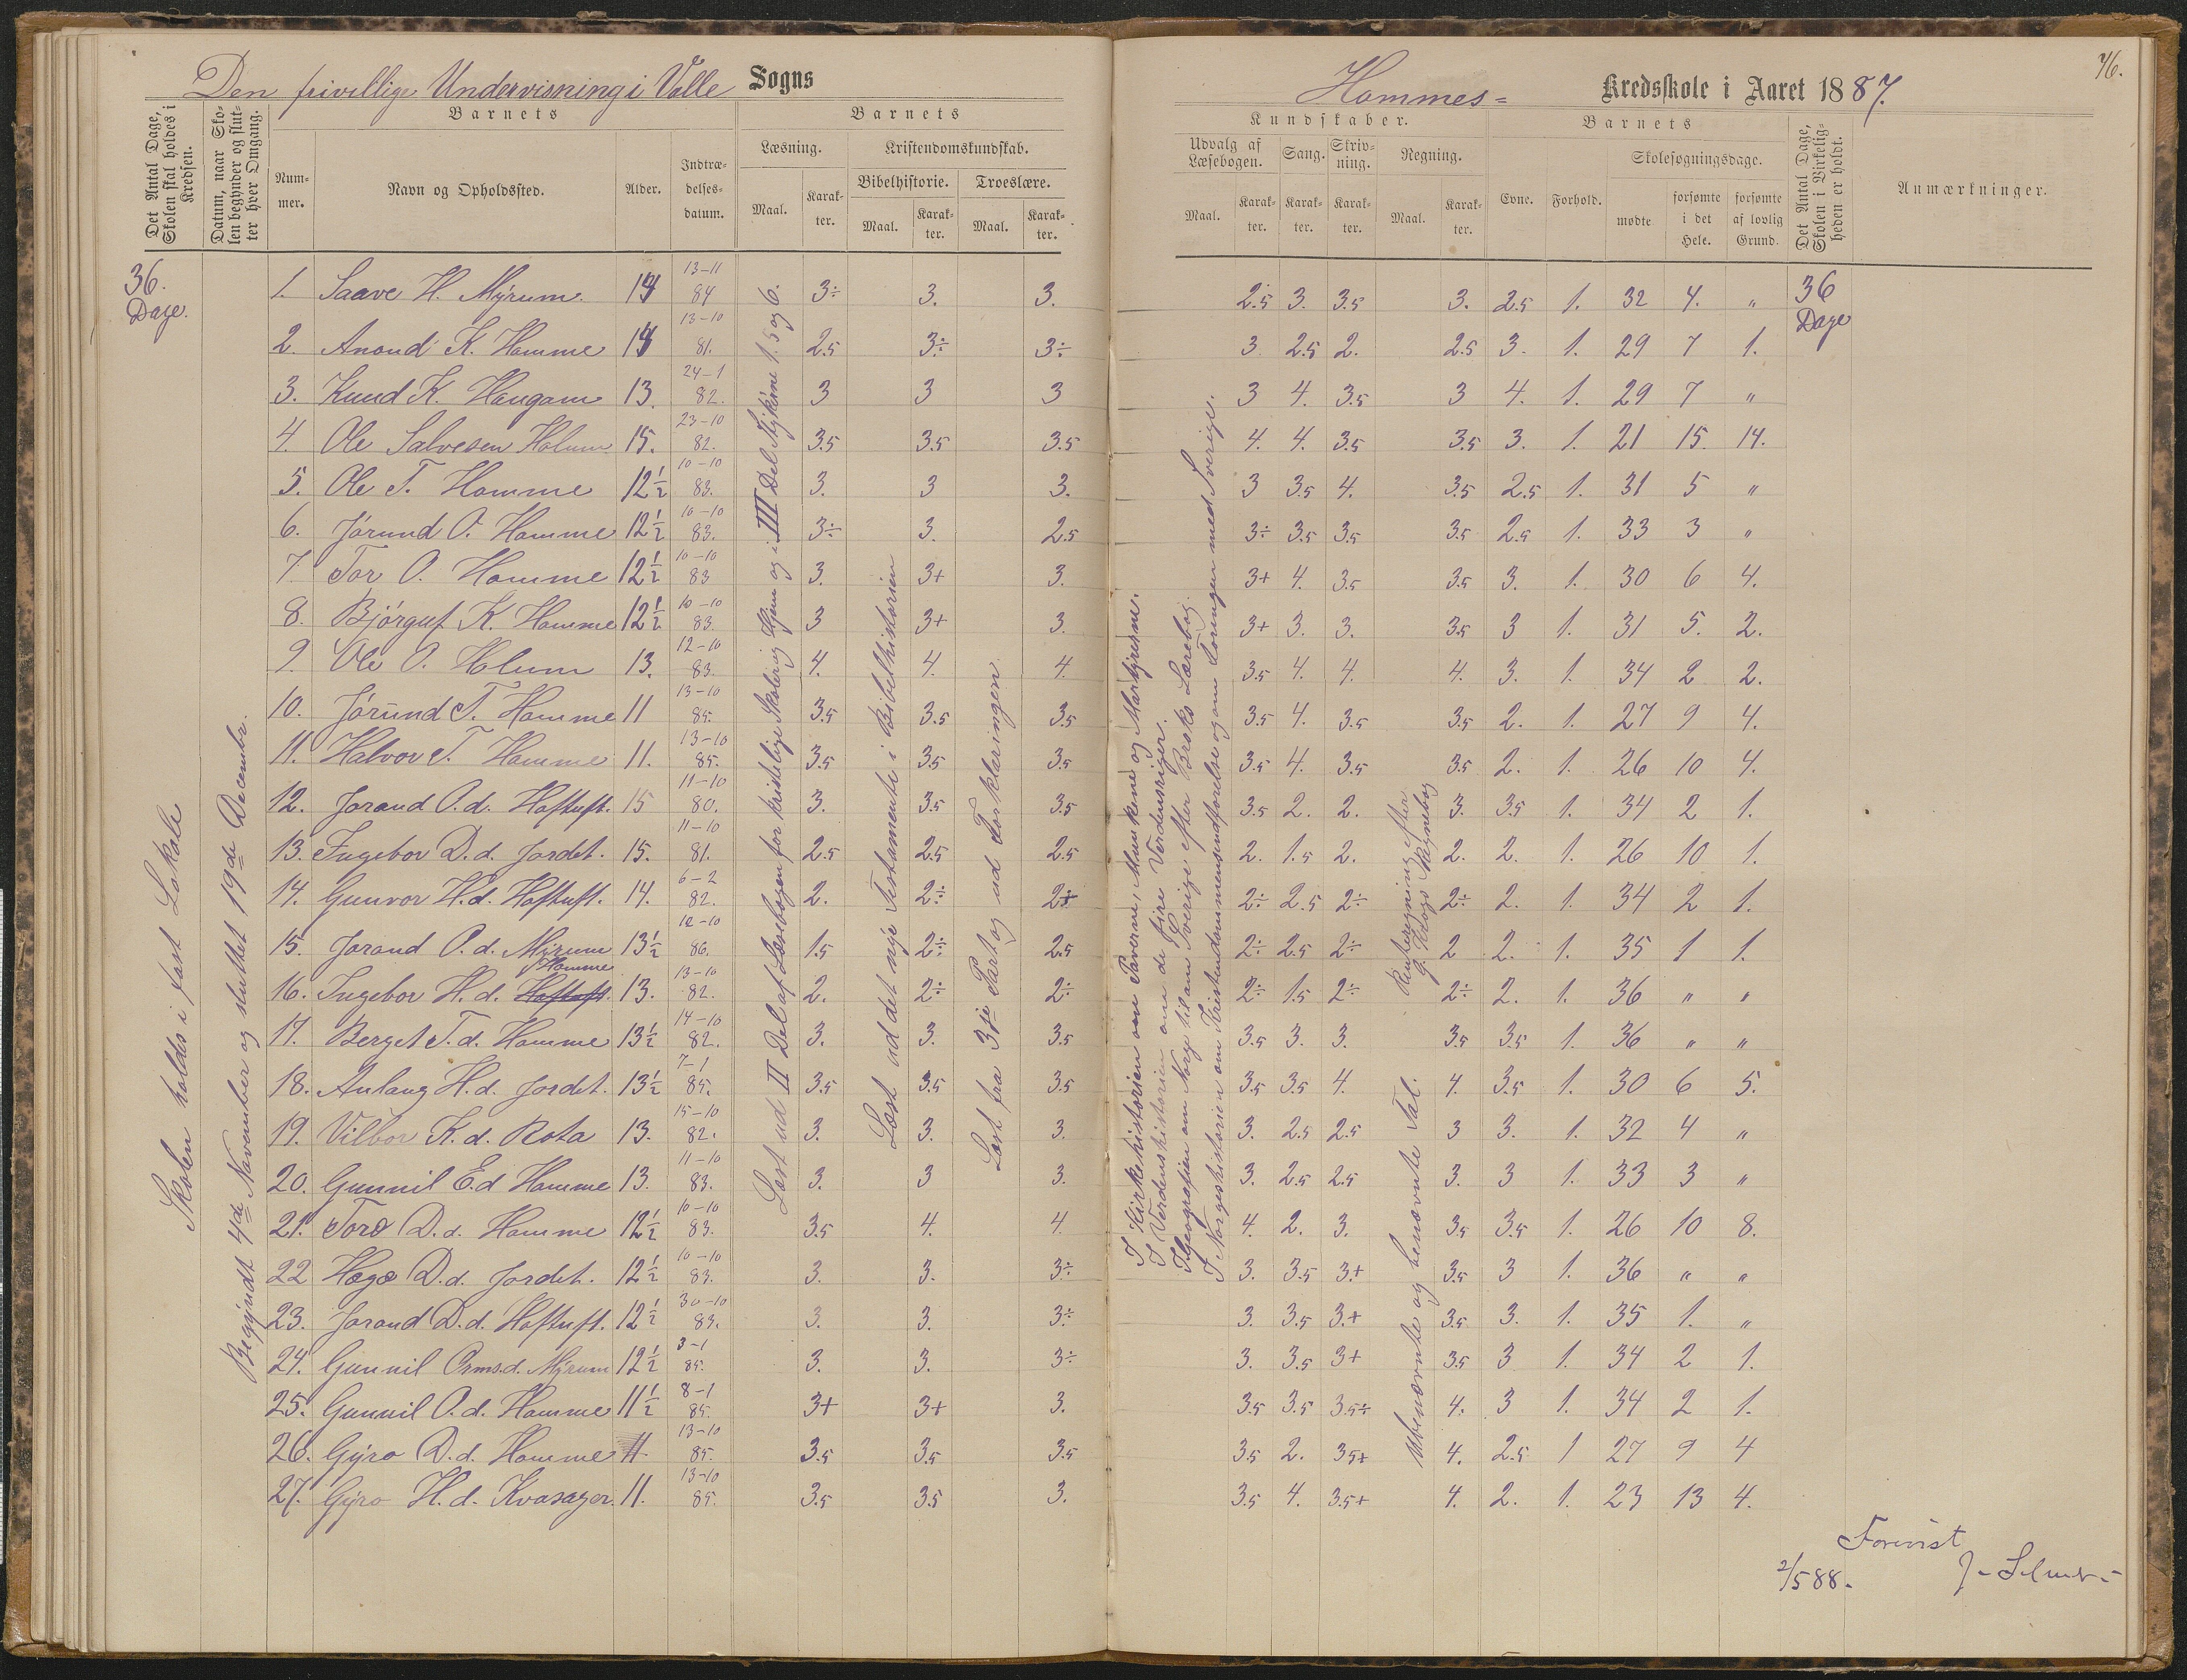 Den frivillige Undervisning i Valle Sogns
Hommes= Kredsskole i Aaret 1887.
76.
Det Antal Dage, Skolen skal holdes i Kredsen.
Datum, naar Skolen begynder og slutter hver Omgang.
Barnets
Nummer.
Navn og Opholdssted.
Alder.
Indtrædelsesdatum.
Barnets
Læsning.
Maal.
Karakter.
Kristendomskundskab.
Bibelhistorie.
Maal.
Karakter.
Troeslære.
Maal.
Karakter.
Kundskaber.
Udvalg af Læsebogen.
Maal.
Karakter.
Sang.
Karakter.
Skrivning.
Karakter.
Regning.
Maal.
Karakter.
Barnets
Evne.
Forhold.
Skolesøgningsdage.
mødte
forsømte i det Hele.
forsømte af lovlig Grund.
Det Antal Dage, Skolen i Virkeligheden er holdt.
Anmærkninger.
36. Dage.
36 Dage
Skolen holdes i fast Lokale
Begyndt 4de November og sluttet 19de Decembr.
Læst ud II Del af Læsebogen for kristelige Skoler og Hjem og i III Del Stykkene 1. 5 og 6.
Læst ud det nye Testamente i Bibelhistorien
Læst fra 3je Part og ud Forklaringen
I Kirkehistorien om Paverne, Munkene og Martyrerne.
I Verdenshistorien om de fire Verdensriger.
I Geografien om Norge til om Sverige efter Broks Lærebog.
I Norgeshistorien om Kristendommens indførelse og om Foreningen med Sverige.
Ubenævnte og benævnte Tal.
Renteregning efter
Regnebog
1. Saave H. Myrum. 14 13-11 84 3÷ 3. 3. 2.5 3. 3.5 3. 2.5 1. 32 4. "
2. Anond K. Homme 13-10 81. 2.5 3÷ 3÷ 3 2.5 2. 2.5 3. 1. 29 7 1.
3. Knud K. Haugom 13. 24-1 82. 3 3 3 3 4. 3.5 3 4. 1. 29 7 "
4. Ole Salvesen Holum 15. 23-10 82. 3.5 3.5 3.5 4. 4. 3.5 3.5 3. 1. 21 15. 14.
5. Ole T. Homme 12½ 10-10 83. 3. 3 3. 3 3.5 4. 3.5 2.5 1. 31 5 "
6. Jørund O. Homme 12½ 10-10 83. 3÷ 3. 2.5 3÷ 3.5 3.5 3.5 2.5 1. 33 3 "
7. Tor O. Homme 12½ 10-10 83 3. 3+ 3. 3+ 4. 3.5 3.5 3. 1. 30 6 4.
8. Bjørguf K. Homme 12½ 10-10 83. 3 3+ 3. 3+ 3. 3. 3.5 3 1. 31 5. 2.
9. Ole O. Holum 13. 12-10 83. 4. 4. 4. 3.5 4. 4. 4. 3. 1. 34 2 2.
10. Jørund T. Homme 11 13-10 85. 3.5 3.5 3.5 3.5 4. 3.5 3.5 2. 1. 27 9 4.
11. Halvor T. Homme 11. 13-10 85. 3.5 3.5 3.5 3.5 4. 3.5 3.5 2. 1. 26 10 4.
12. Jorand O.d. Hoftuft. 15 11-10 80. 3. 3.5 3.5 3.5 2. 2. 3. 3.5 1. 34 2 1.
13. Ingebor D.d. Jordet. 15. 11-10 81. 2.5 2.5 2.5 2. 1.5 2. 2. 2. 1. 26 10 1.
14. Gunvor H.d. Hoftuft. 14. 6-2 82. 2. 2÷ 2+ 2÷ 2.5 2÷ 2÷ 2. 1. 34 2 1.
15. Jorand O.d. Myrum 13½ 12-10 86. 1.5 2÷ 2.5 2÷ 2.5 2÷ 2 2. 1. 35 1 1.
16. Ingebor H.d. Hoftuft. Homme 13. 13-10 82. 2. 2÷ 2÷ 2÷ 1.5 2÷ 2÷ 2. 1. 36 " "
17. Berget T.d. Homme 13½ 14-10 82. 3. 3. 3.5 3.5 3. 3. 3.5 3.5 1. 36 " "
18. Anlaug H.d. Jordet. 13½ 7-1 85. 3.5 3.5 3.5 3.5 3.5 4. 4. 3.5 1. 30 6 5.
19. Vilbor K.d. Rota 13. 15-10 82. 3. 3. 3. 3. 2.5 2.5 3 3. 1. 32 4 "
20. Gunnil E.d Homme 13. 11-10 83. 3. 3 3. 3. 2.5 2.5 3. 3 1. 33 3 "
21. Toro D.d. Homme 12½ 10-10 83. 3.5 4. 4. 4. 2. 3. 3.5 3.5 1. 26 10 8.
22 Hæge D.d. Jordet. 12½ 10-10 83. 3. 3. 3÷ 3. 3.5 3.+ 3.5 3 1. 36 " "
23. Jorand D.d. Hoftuft. 12½ 30-10 83. 3. 3. 3÷ 3. 3.5 3.+ 3.5 3. 1. 35 1. "
24. Gunnil Orms.d. Myrum 12½ 3-1 85. 3. 3. 3÷ 3. 3.5 3+ 3.5 3 1. 34 2 1.
25. Gunnil O.d. Homme 11½ 8-1 85. 3+ 3+ 3. 3.5 3.5 3.5÷ 4. 3 1. 34 2 1.
26. Gyro D.d. Homme 11. 13-10 85. 3.5 3.5 3.5 3.5 2. 3.5+ 4. 2.5 1 27 9 4
27. Gyro H.d. Kvasager. 11. 13-10 85. 3.5 3.5 3. 3.5 4. 3.5+ 4. 2. 1. 23 13 4.
Forevist
2/5 88. J. Selmer.